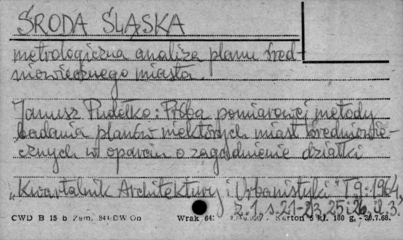 ŚRODA ŚLĄSKA
metrologiczna analiza planu śred-
niowiecznego miasta.
Janusz Pudełko: Próba pomiarowej metody
badania planów niektórych miast średniowie-
cznych w oparciu o zagadnienie działki
"Kwartalnik Architektury i Urbanistyki" T.9:1964,
z.1 s.21-23, 25 i 26, il.3.
CWD B 15 b Zam. On Wrak. 64: Karton 180 g.